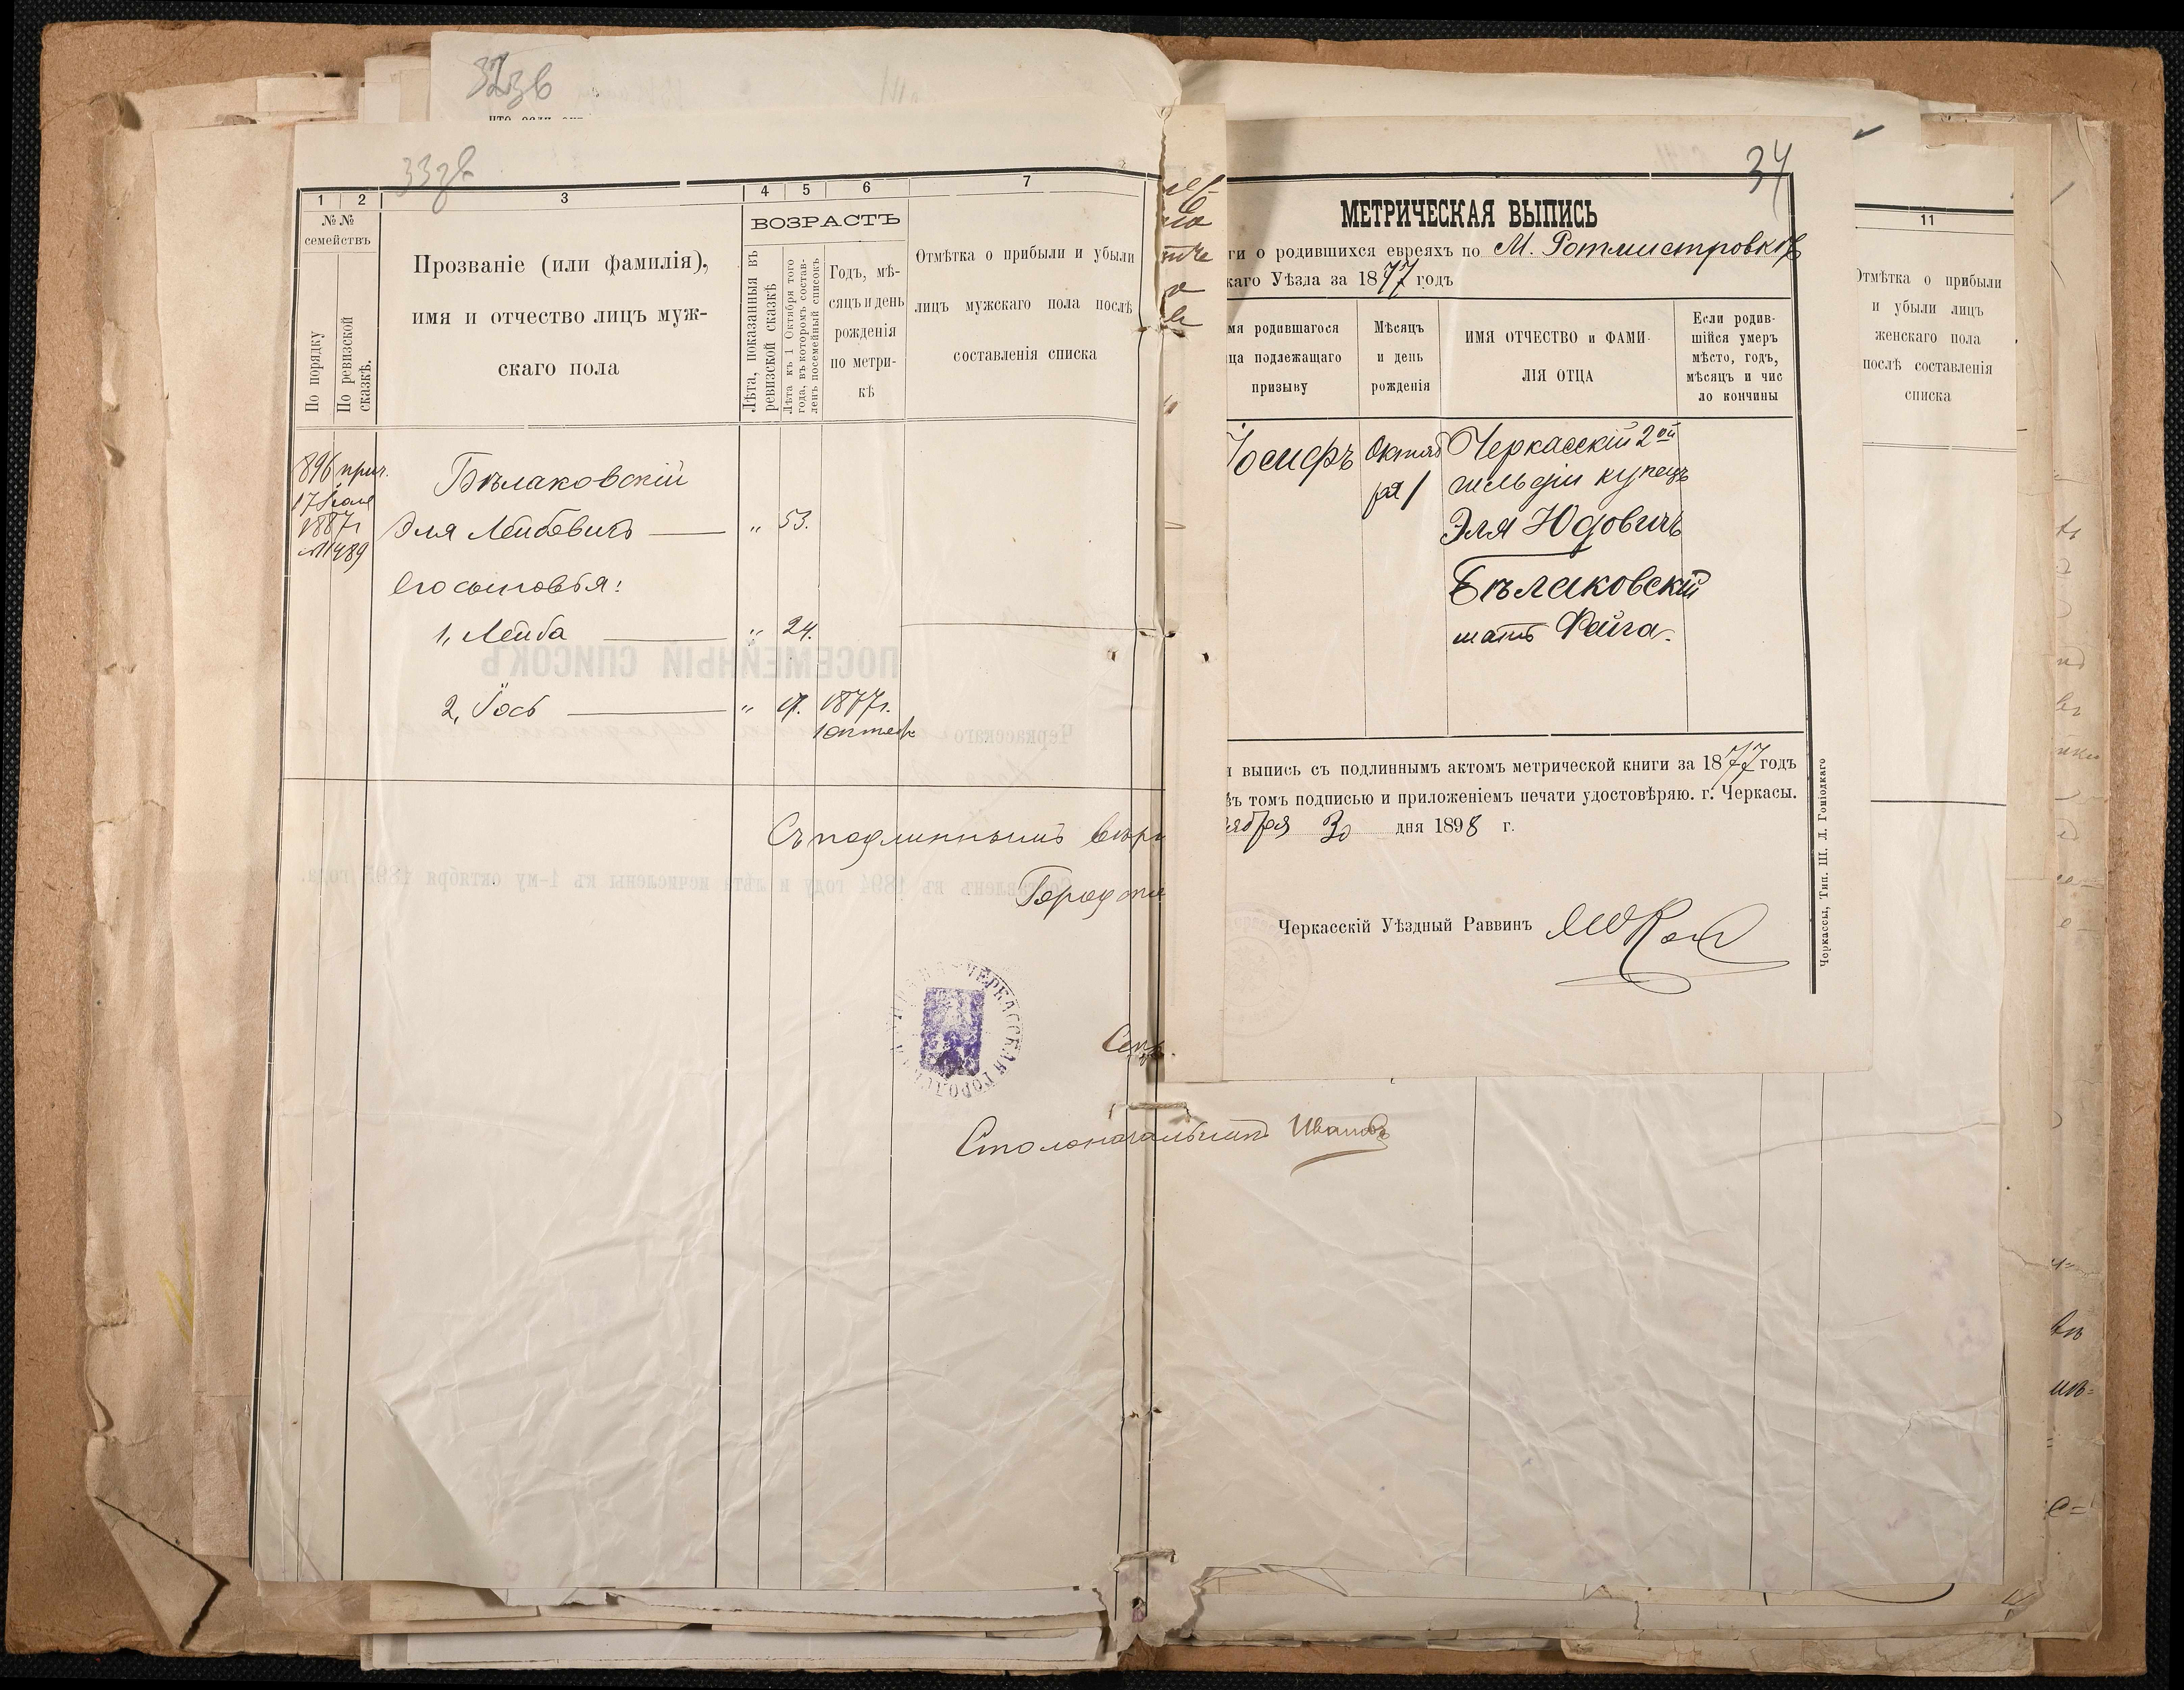 32зв
33зв
1 2 3 4 5 6 7
№ №
семействъ
По порядку
По ревизской сказкѣ.
Прозваніе (или фамилія),
имя и отчество лицъ муж-
скаго пола
ВОЗРАСТЪ
Лѣта, показанныя въ
ревизской сказкѣ
Лѣта къ 1 Октября того
года, въ которомъ состав-
ленъ посемейный списокъ
Годъ, мѣ-
сяцъ и день
рожденія
по метри-
кѣ
Отмѣтка о прибыли и убыли
лицъ мужскаго пола послѣ
составленія списка
896 прич.
17
1887г
№1489
Бѣлаковскій
Эля Лейбовичъ — „ 53.
Его сыновья:
1, Лейба — „ 24.
2, Іось — „ 17. 1877г.
1 октяб
ПОСЕМЕЙНЫЙ СПИСОКЪ
Черкасскаго
Составленъ въ 1894 году и лѣта исчислены къ 1-му октября 1895 года.
Съ подлиннымъ вѣр
Город
ЧЕРКАССКАЯ ГОРОДСКАЯ
Сек
Столоначальникъ Ивановъ
34
МЕТРИЧЕСКАЯ ВЫПИСЬ
ги о родившихся евреяхъ по М. Ротмистровкѣ
каго Уѣзда за 1877 годъ
мя родившагося
ца подлежащаго
призыву
Мѣсяцъ
и день
рожденія
ИМЯ ОТЧЕСТВО и ФАМИ-
ЛІЯ ОТЦА
Если родив-
шійся умеръ
мѣсто, годъ,
мѣсяцъ и чис
ло кончины
Іосифъ
Октяб
ря 1
Черкасскій 2ой
гильдіи купецъ
Эля Юдовичъ
Бѣлаковскій
мать Фейга.
выпись съ подлиннымъ актомъ метрической книги за 1877 годъ
въ томъ подписью и приложеніемъ печати удостовѣряю. г. Черкасы.
ября 30 дня 1898 г.
Черкасскій Уѣздный Раввинъ
Черкассы, Тип. Ш. Л. Гоніодкаго
11
Отмѣтка о прибыли
и убыли лицъ
женскаго пола
послѣ составленія
списка